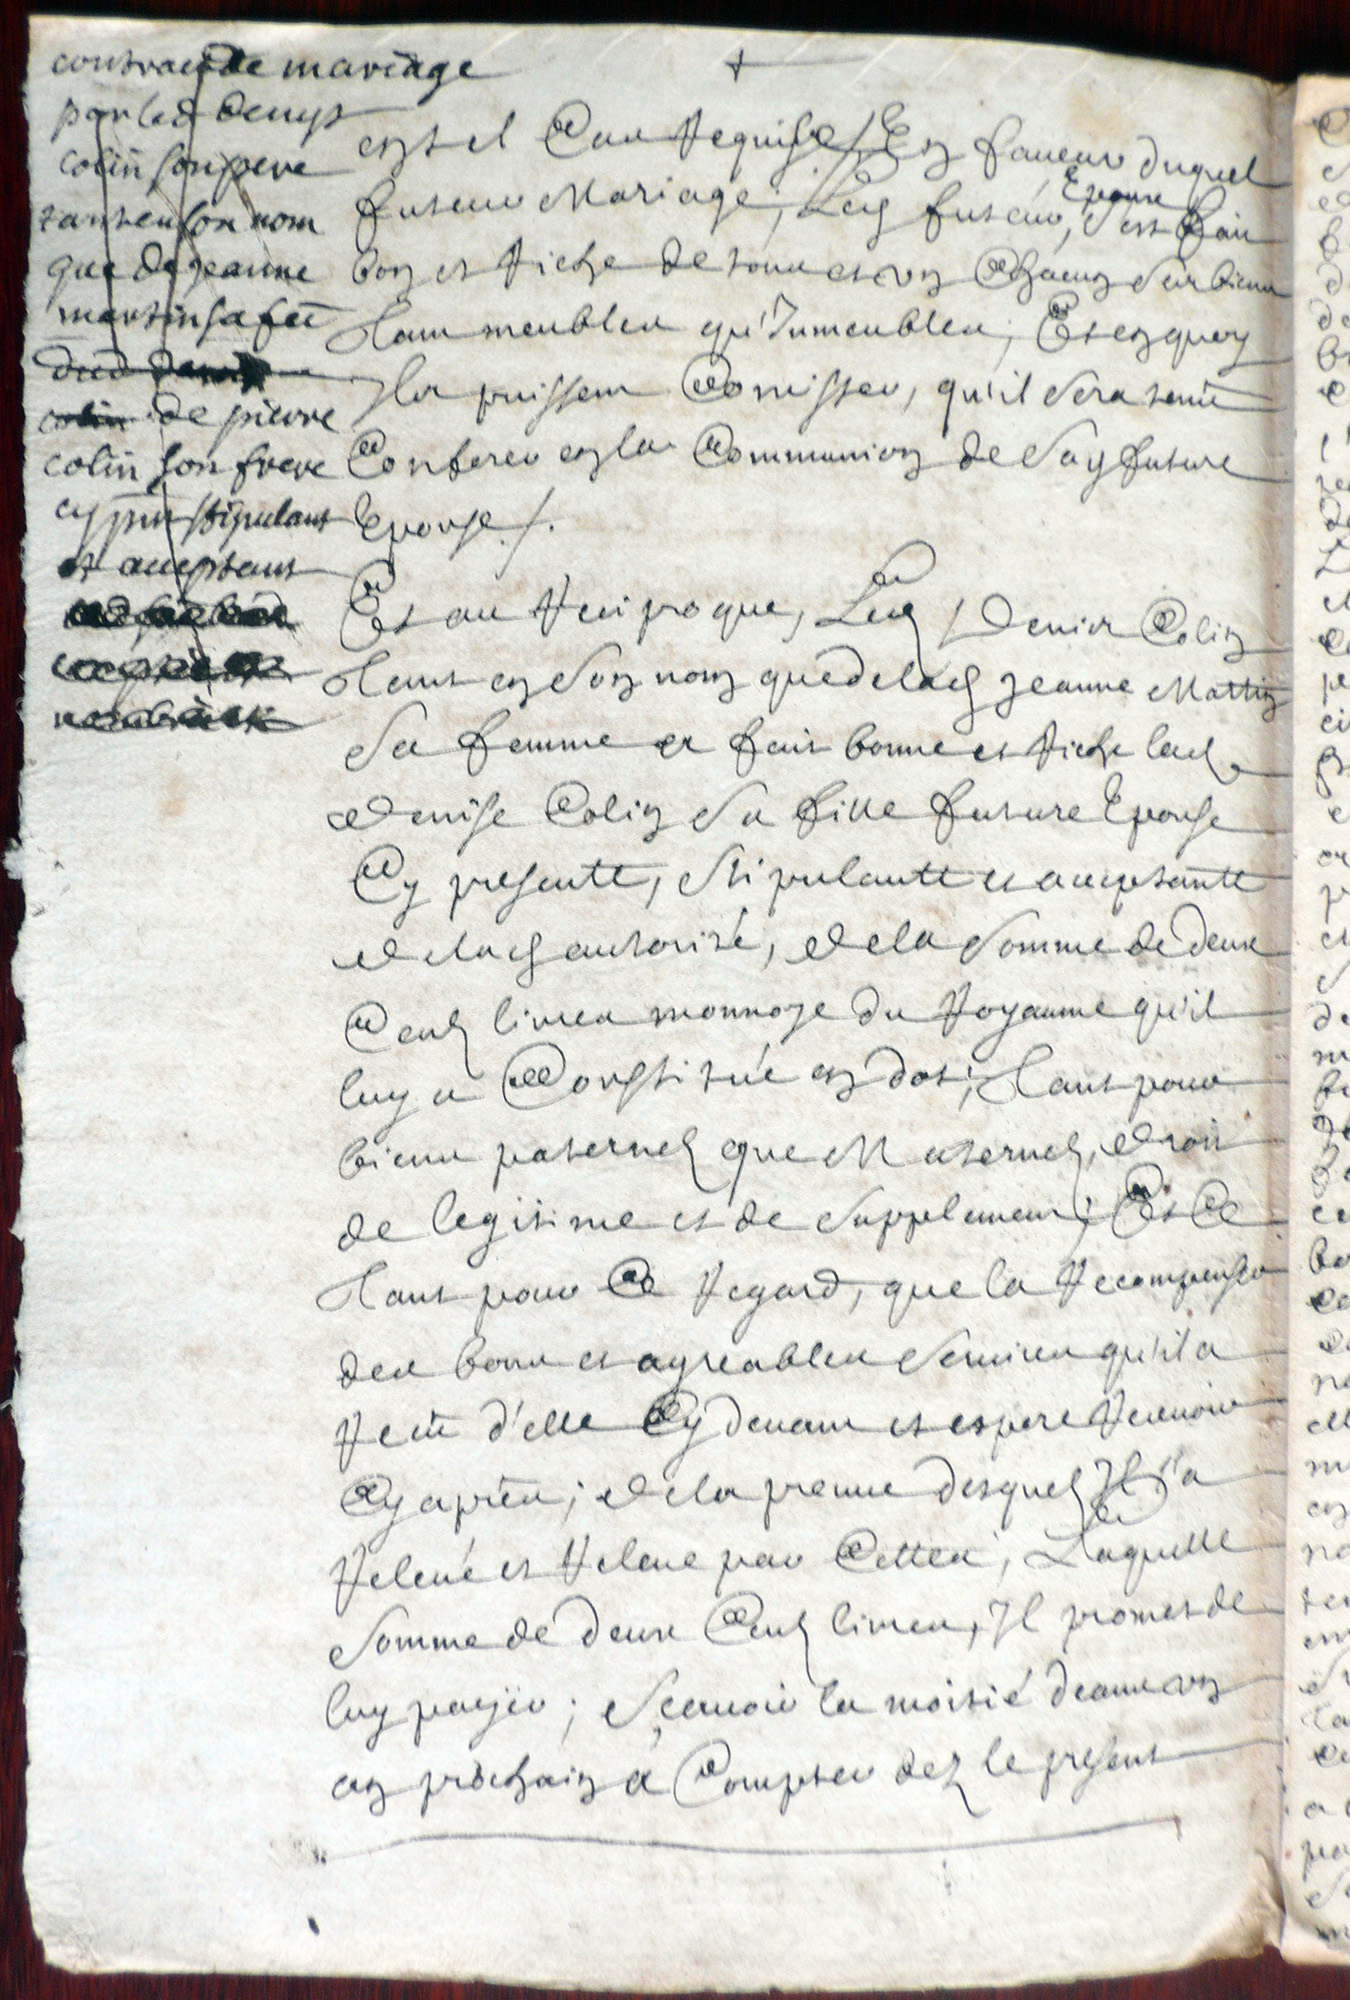 contract de mariage
par led denys
colin son pere
tant en son nom
que de jeanne
martin sa fee
dud denis
colin de pierre
colin son frere
cy pnt stipulant
et acceptant
est et Cau Requise /. En faveur duquel
futeur Mariage, Led futeur, Epoux s'est fait
bon et Riche de tous et un Chacuns ses biens
Tant meubles qu'Immeubles, Et en quoy
Ils puissent Consister, qu'il sera tenu
Conferer en la Communion de sa d future
Epouse /.
Et au Reciproque, Led Denis Colin
Tant en son nom que de lad jeanne Martin
Sa femme a fait bonne et Riche lad
Denise Colin Sa fille future Epouse
Cy presente, Stipulante et acceptante
de lad authorité, de la Somme de deux
Cents livres monnoye du Royaume qu'il
luy a Constitué en dot, Tant pour
biens paternels que Maternels, droit
de legitime et de Supplement; Et Ce
Tant pour Ce Regard, que la Recompense
des bons et agreables Services qu'il a
Receu d'elle Cy devant et espere Recevoir
Cy apres; de la preuve desquels Il l'a
Relevé et Releve par Cettes, Laquelle
Somme de deux Cents livres, Il promet de
luy payer; Sçavoir la moitié dans un
an prochain a Compter dez le present